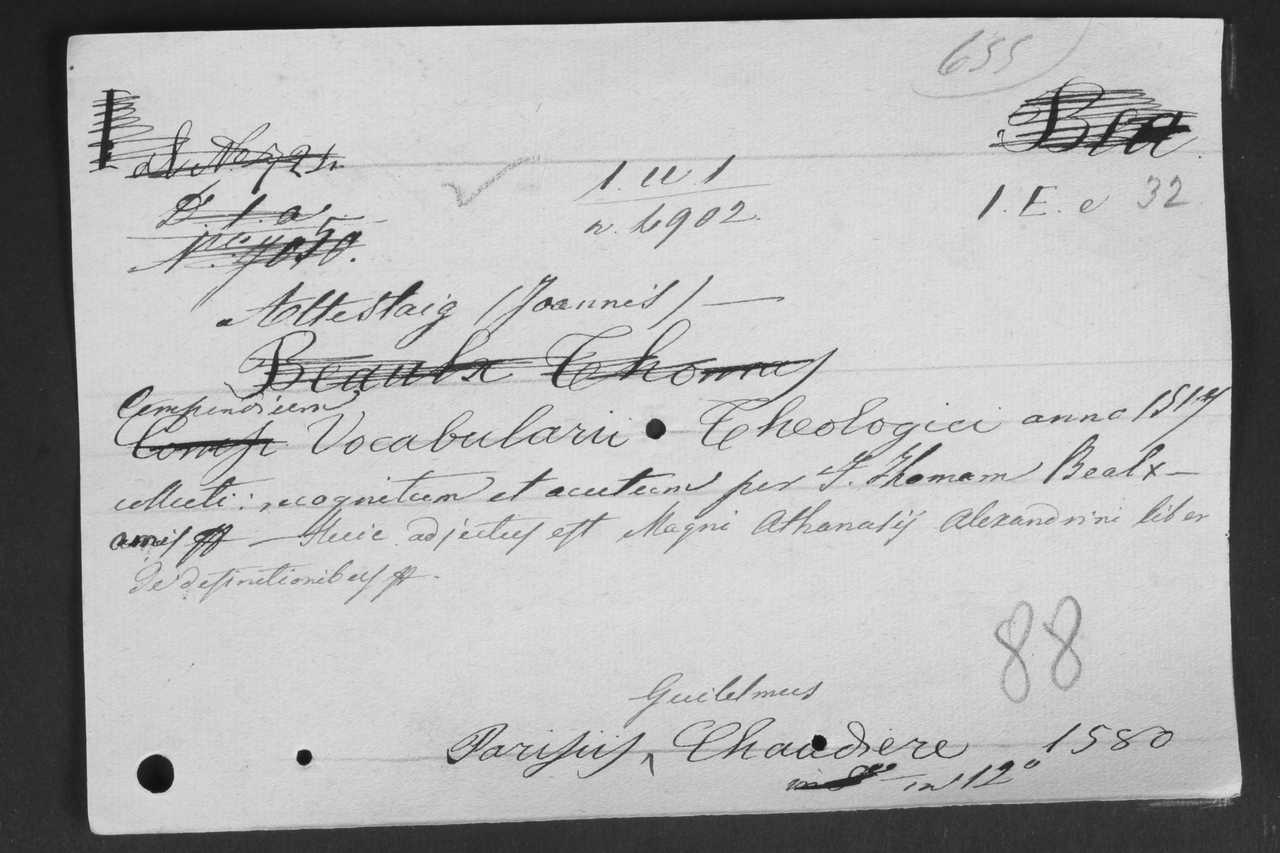 655
Bea
S. No. 724
1. u. 1
1. E. e 32
D. 1. a
n. 6902.
No. 7050.
Altestaig (Joannis) —
Beaulx Thomas
Compendium
Comp Vocabularii Theologici anno 1517
collecti: recognitum et auctum per F. Thomam Bealx-
amis — Huic adjectus est Magni Athanasij Alexandrini liber
de definitionibus
88
Guilelmus
Parisiis ^ Chaudiere 1580
in 8vo in 12º